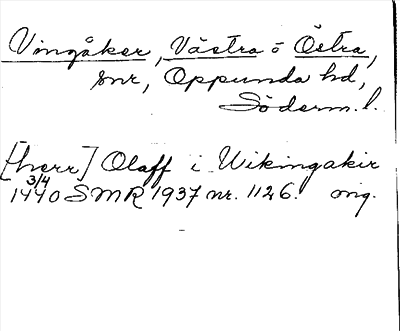 Vingåker, Västra o Östra,
snr, Oppunda hd,
Söderm. l.
[herr] Olaff i Wikingakir
3/4
1440 SMR 1937 nr. 1126. orig.